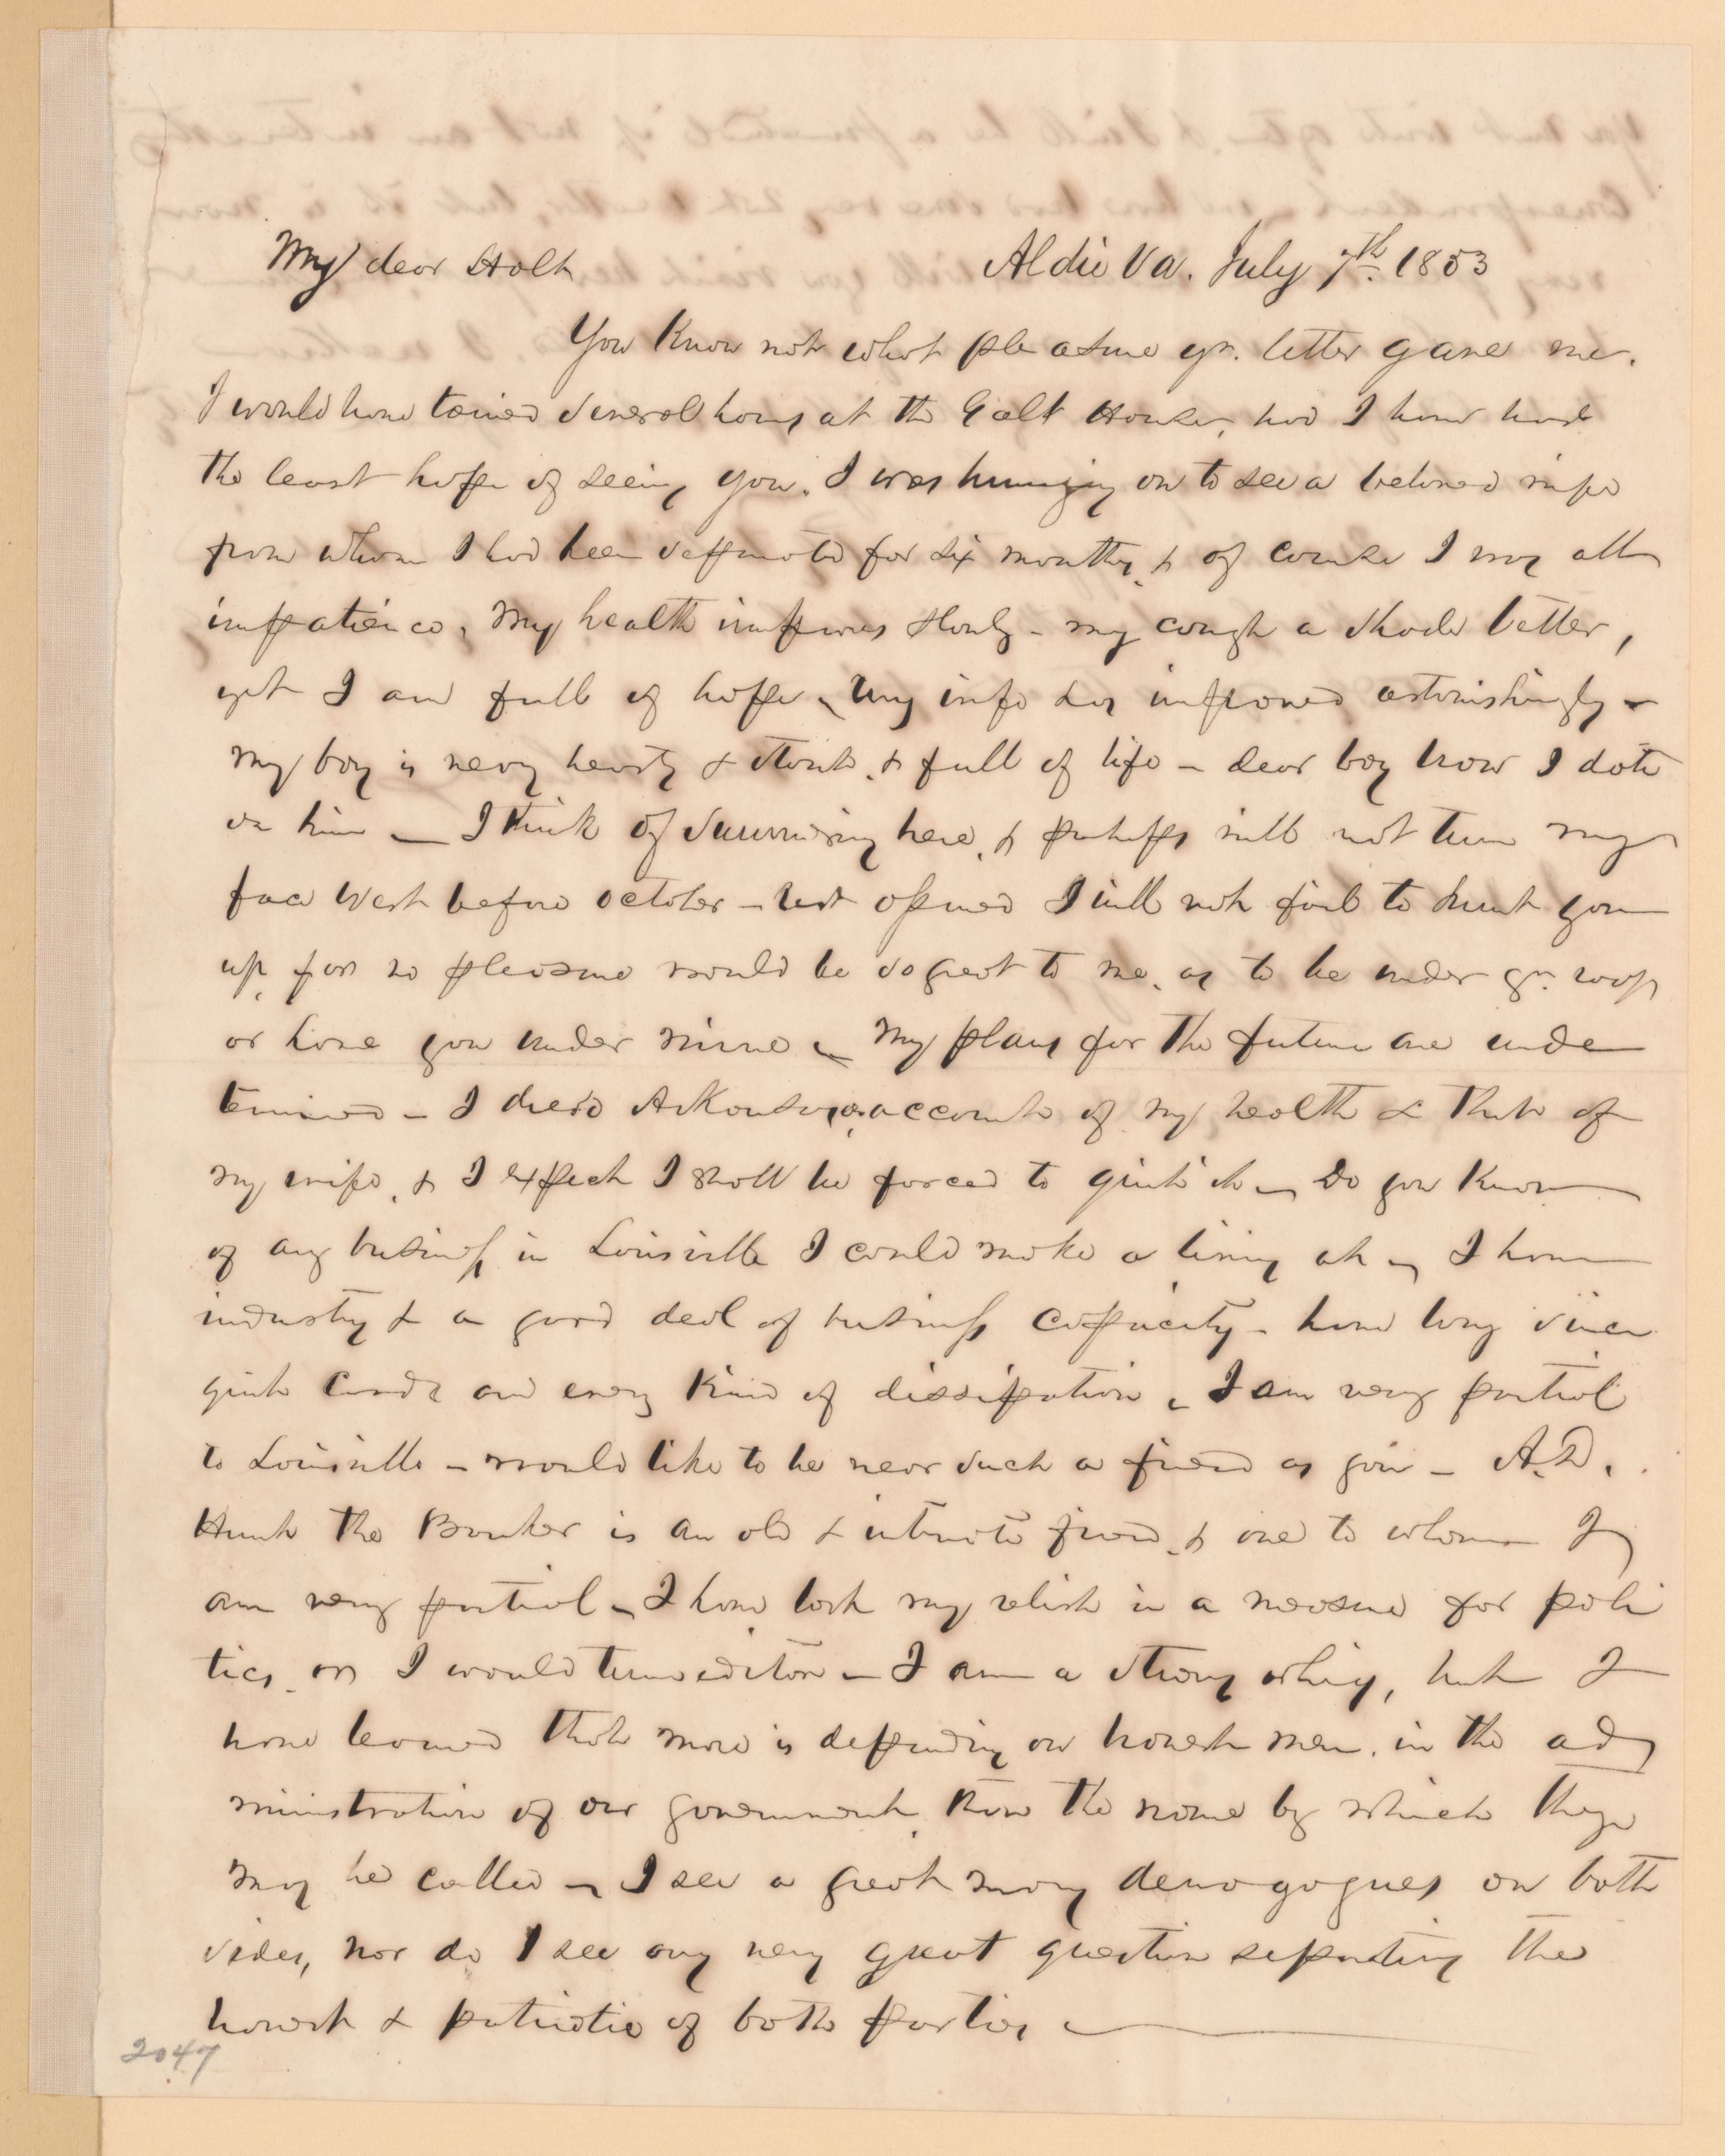 My dear Holt Aldie Va. July 7th. 1853
You Know not what pleasure yr. letter gave me.
I would have tarried several hours at the Galt House, had I have had
the least hope of seeing you. I was hurrying on to see a beloved wife
from whom I had been seperated for six months, & of course I was all
impatience, My health improves slowly - my cough a shade better,
yet I am full of hope - My wife has improved astonishingly -
my boy is very hearty & stout, & full of life - dear boy how I dote
on him - I think of summering here, & perhaps will not turn my
face West before October - rest assured I will not fail to hunt you
up, for no pleasure would be so great to me, as to be under yr. roof
or have you under mine - My plans for the future are unde
termined - I dread Arkansas, on account of my health & that of
my wife, & I expect I shall be forced to quit it - Do you Know
of any business in Louisville I could make a living at - I have
industry & a good deal of business capacity - have long since
quit cards and every Kind of dissipation - I am very partial
to Louisville - would like to be near such a friend as you - A.D.
Hunt the Banker is an old & intimate friend, & one to whom I
am very partial - I have lost my relish in a measure for poli
tics, or I would turn editor - I am a strong whig, but I
have learned that more is depending on honest men, in the ad
ministration of our government, than the name by which they
may be called - I see a great many demagogues on both
sides, nor do I see any very great question separating the
honest & patriotic of both parties -
2047